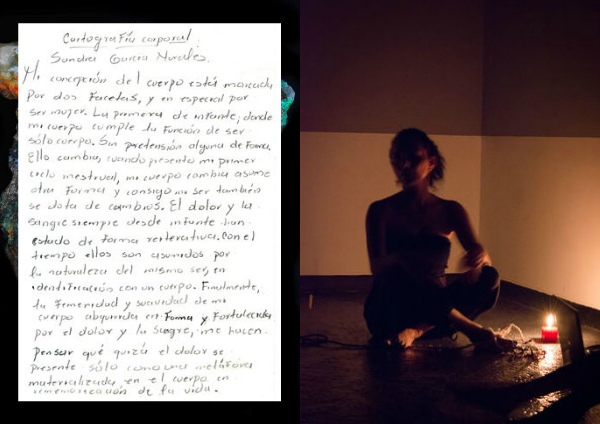 Cartografía corporal
Sandra García Morales.
Mi concepción del cuerpo está marcada
por dos facetas, y en especial por
ser mujer. La primera de infante, donde
mi cuerpo cumple la función de ser
sólo cuerpo. Sin pretensión alguna de Forma.
Ello cambia, cuando presento mi primer
ciclo mestrual, mi cuerpo cambia asume
otra Forma y consigo mi ser también
se dota de cambios. El dolor y la
sangre siempre desde infante han
estado de Forma reiterativa. Con el
tiempo ellos son asumidos por
la naturaleza del mismo ser, en
identificación con un cuerpo. Finalmente,
la Femeridad y suavidad de mi
cuerpo adquirida en Forma y Fortalecida
por el dolor y la Sangre, me hacen
pensar qué quizá el dolor se
presente sólo como una metáfora
materializada, en el cuerpo en
rememorización de la vida.